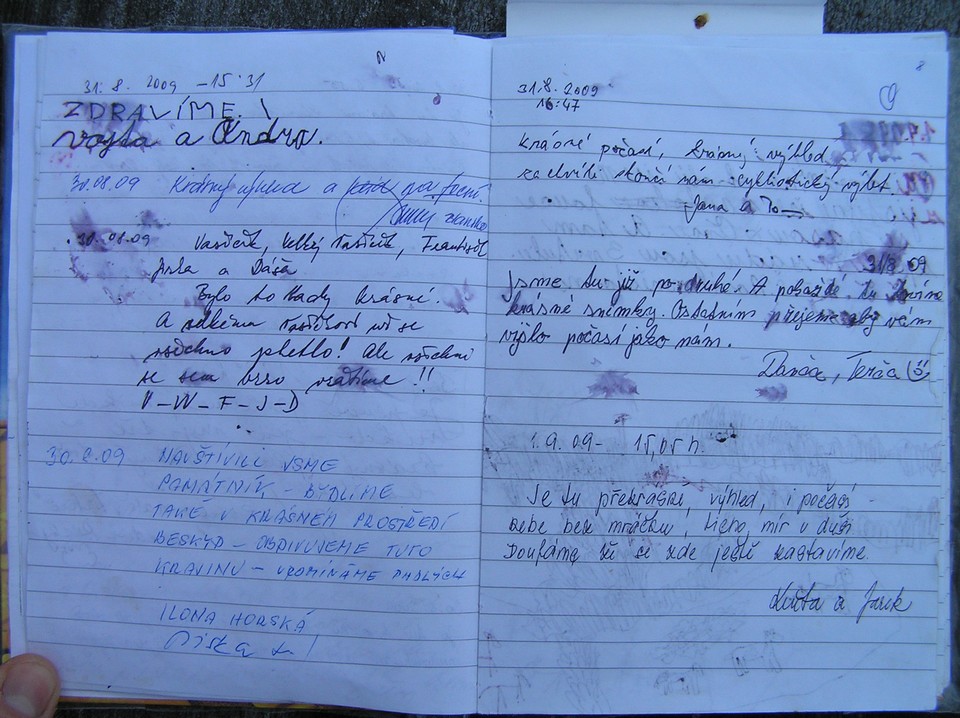 31. 8. 2009 - 15:31
ZDRAVÍME!
Vojta a Ondra.
30.08.09 Krásný a na focení.
30.08.09 Vašíček, Velký Vašíček, František
Jirka a Dáša
Bylo to tady krásné.
A Vašíčkovi už se
všechno pletlo! Ale všichni
se sem brzo vrátíme!!
V-W-F-J-D
30.8.09 NAVŠTÍVILI JSME
PAMÁTNÍK - BYDLÍME
TAKÉ V KRÁSNÉM PROSTŘEDÍ
BESKYD - OBDIVUJEME TUTO
KRAJINU - VZPOMÍNÁME PADLÝCH
ILONA HORSKÁ
31.8.2009
16:47
krásné počasí, krásný výhled
za chvíli skončí nám cyklistický výlet
Jana a
31.8.09
Jsme tu již podruhé. A pokaždé tu
krásné snímky. Ostatním přejeme aby vám
vyšlo počasí jako nám.
Danča, Terča
1.9.09- 15,05h.
Je tu překrásný výhled, i počasí -
nebe bez mráčku, ticho, mír v duši
Doufáme že se zde ještě zastavíme.
a Jarek